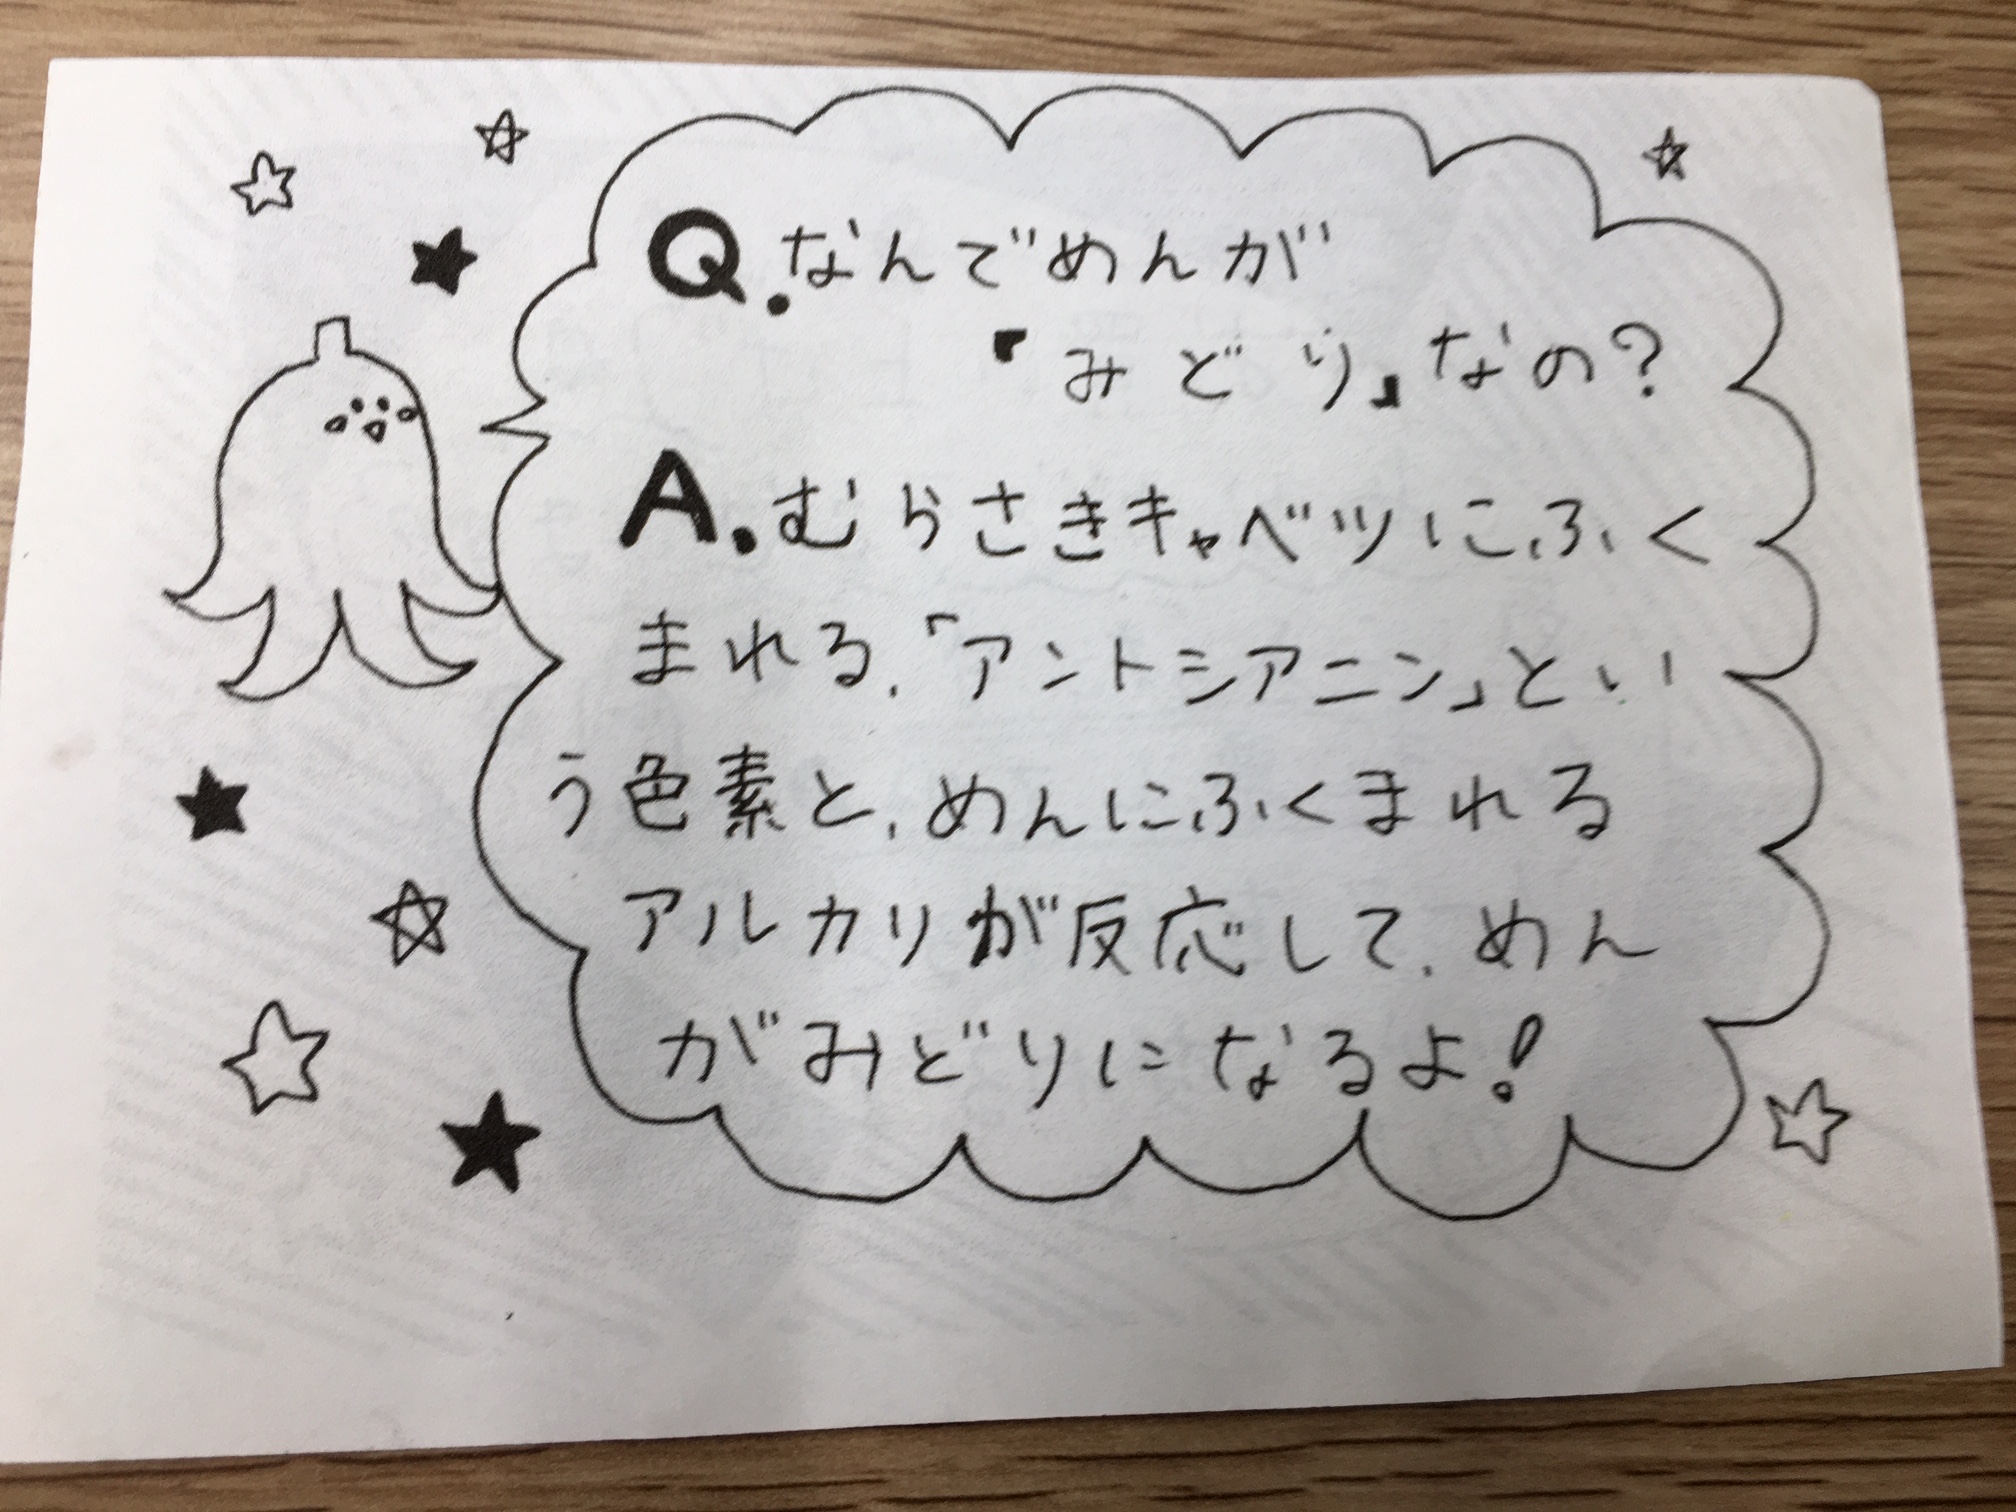 Q.なんでめんが
『みどり』なの？
A.むらさきキャベツにふく
まれる、「アントシアニン」とい
う色素と、めんにふくまれる
アルカリが反応して、めん
がみどりになるよ!